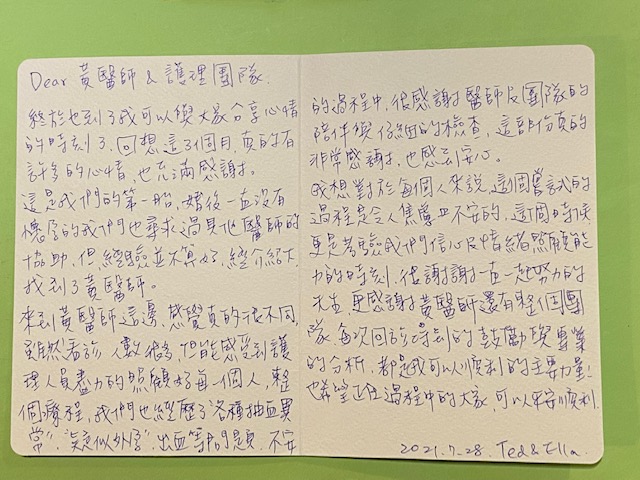 Dear 黃醫師 & 護理團隊:
終於也到了我可以與大家分享心情
的時刻了. 回想這個月, 真的有
許多的心情, 也充滿感謝.
這是我們的第一胎, 婚後一直沒有
懷孕的我們也尋求過其他醫師的
協助, 但經驗並不算好, 經介紹才
找到了黃醫師.
來到黃醫師這邊, 感覺真的很不同,
雖然看診人數很多, 但能感受到護
理人員盡力的照顧好每一個人, 整
個療程, 我們也經歷了"各種抽血異
常", "疑似外孕", 出血等問題. 不安
的過程中, 很感謝醫師及團隊的
陪伴與仔細的檢查, 這部份真的
非常感謝, 也感到安心.
我想對於每個人來說, 這個嘗試的
過程是令人焦慮且不安的, 這個時候
更是考驗我們信心及情緒照顧能
力的時刻, 很謝謝一直一起努力的
先生, 更感謝黃醫師還有整個團
隊, 每次回診時刻的鼓勵與專業
的分析, 都是我可以順利的主要力量!
也希望正在過程中的大家, 可以平安順利.
2021.7.28. Ted & Ella.